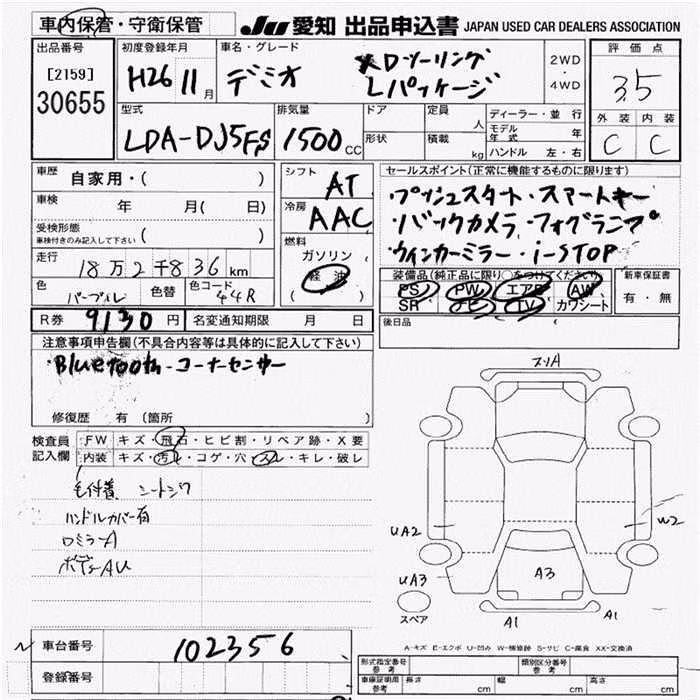 車内保管・守衛保管
JU 愛知 出品申込書 JAPAN USED CAR DEALERS ASSOCIATION
出品番号
[2159]
30655
初度登録年月
H26 11月
車名・グレード
デミオ
XDツーリング
Lパッケージ
2WD
・
4WD
評価点
3.5
外装 内装
C C
型式
LDA-DJ5FS
排気量
1500 CC
ドア
形状
定員 人
積載 kg
ディーラー・並行
モデル年式 年
ハンドル 左・右
車歴 自家用・( )
車検 年 月( 日)
受検形態
車検付きのみ記入して下さい ( )
走行 18万2千836km
色 パープル 色替 色コード 44R
シフト AT
冷房 AAC
燃料
ガソリン
軽油
( )
セールスポイント(正常に機能するものに限ります)
・プッシュスタート・スマートキー
・バックカメラ・フォグランプ
・ウィンカーミラー・i-STOP
装備品(純正品に限り○をつけてください)
PS PW エアB AW
SR ナビ TV カワシート
新車保証書
有・無
R券 9130円 名変通知期限 月 日
後日品
注意事項申告欄(不具合内容等は具体的に記入して下さい)
・Bluetooth・コーナーセンサー
修復歴 有 (箇所
検査員記入欄
FW キズ・飛石・ヒビ割・リペア跡・X要
内装 キズ・汚レ・コゲ・穴・スレ・キレ・破レ
毛付着 シートシワ
ハンドルカバー有
ロミラーA
ボディAU
スリA
UA2
W2
UA3
A3
スペア
A1
A1
A-キズ E-エクボ U-凹み W-補修跡 S-サビ C-腐食 XX-交換済
車台番号 102356
登録番号
型式指定番号 参考
類別区分番号 参考
車庫証明用 参考 長さ cm 幅 cm 高さ cm